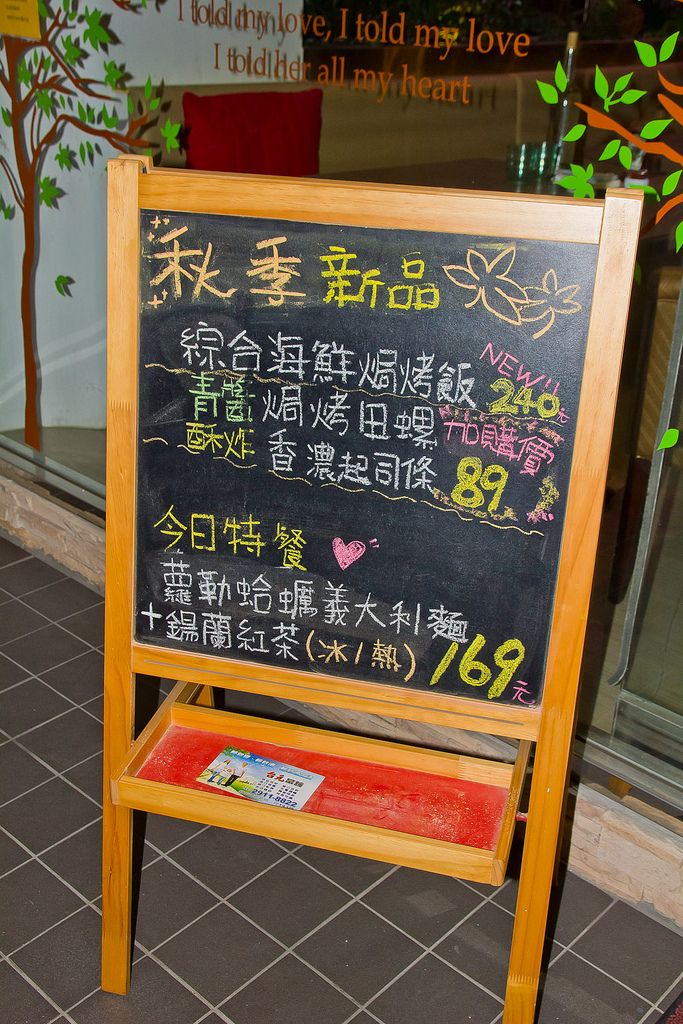 I told my love, I told my love
I told her all my heart
秋季新品
綜合海鮮焗烤飯 NEW!! 240元
青醬焗烤田螺 加購價
酥炸香濃起司條 89
今日特餐
蘿勒蛤蠣義大利麵
+錫蘭紅茶(冰/熱) 169元
2911-8822